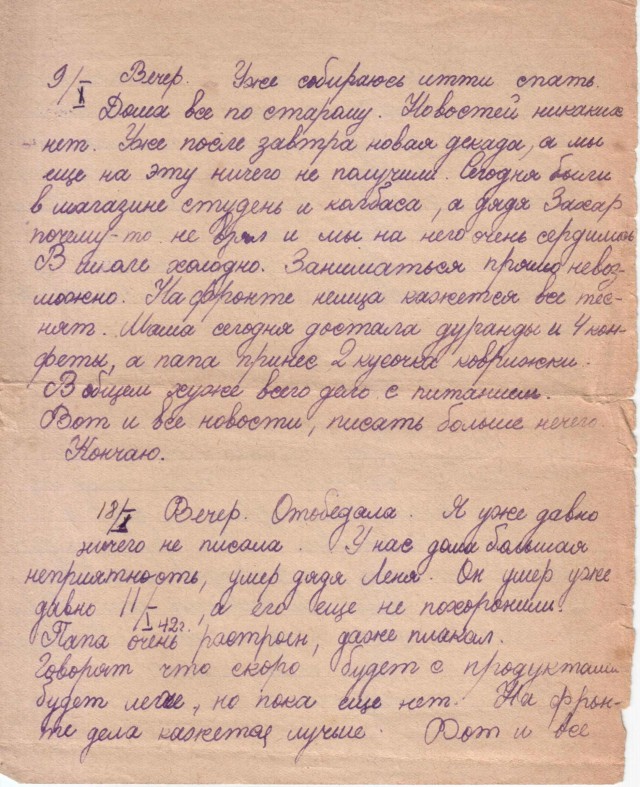 9/I Вечер. Уже собираюсь итти спать.
Дома все по старому. Новостей никаких
нет. Уже после завтра новая декада, а мы
еще на эту ничего не получили. Сегодня были
в магазине студень и колбаса, а дядя Захар
почему-то не брал и мы на него очень сердимся
В школе холодно. Заниматься прямо невоз-
можно. На фронте немца кажется все тес-
нят. Мама сегодня достала дуранды и 4 кон-
феты, а папа принес 2 кусочка коврижки.
В общем хуже всего дело с питанием.
Вот и все новости, писать больше нечего.
Кончаю.
18/I Вечер. Отобедала. Я уже давно
ничего не писала. У нас дома большая
неприятность, умер дядя Леня. Он умер уже
давно 11/I 42г., а его еще не похоронили.
Папа очень растроин, даже плакал.
Говорят что скоро будет с продуктами
будет легче, но пока еще нет. На фрон-
те дела кажется лучше. Вот и все